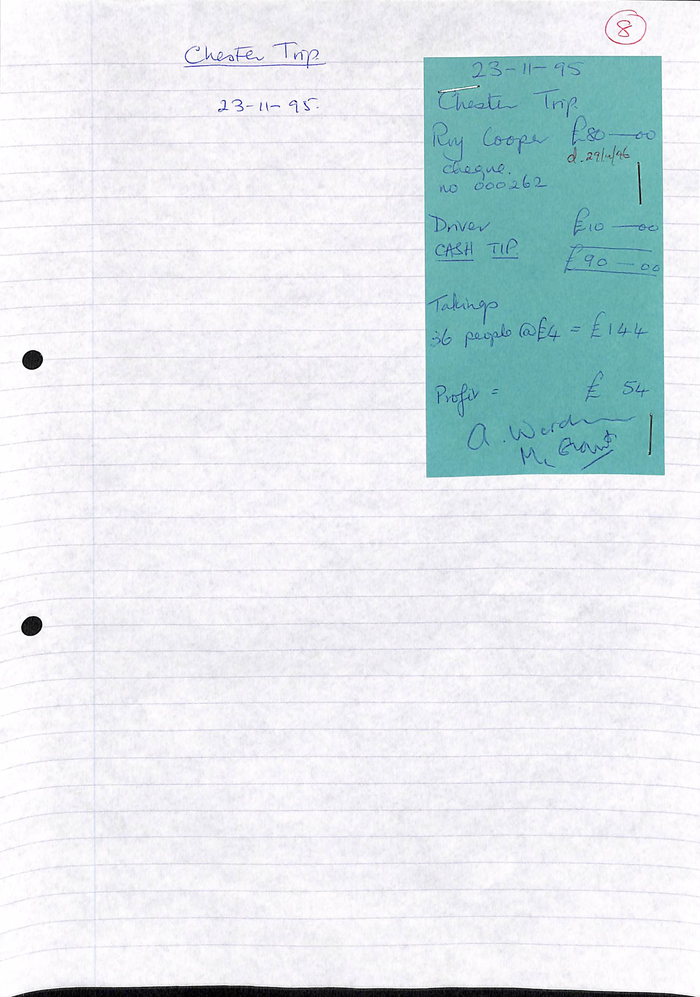 8
Chester Trip
23-11-95.
23-11-95
Chester Trip
Roy Cooper £80—00
cheque. d. 29/4/96
no 000262
Driver £10—00
CASH TIP £90—00
Takings
36 people @ £4 = £144
Profit = £ 54
A. Worden
M. Grant